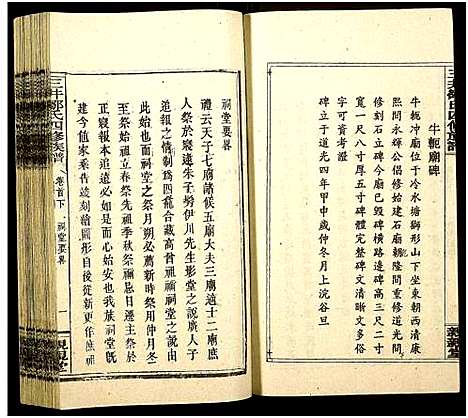 三井鄒氏四修族譜
牛軛廟碑
牛軛冲廟位于冷水塘獅形山下坐東朝西清康
熙間永輝公倡修始建石廟乾隆間重修道光間
修刻石立碑今廟已毀碑橫路邊碑高三尺二寸
寬一尺八寸厚五寸碑體完整碑文清晰文多俱
字可資考證
碑立于道光四年甲申歲仲冬月上浣谷旦
親親堂
祠堂要畧
禮云天子七廟諸侯五廟大夫三廟適士二廟庶
人祭於寢遵朱子勞伊川先生影堂之說廣人子
追報之情制爲四龕合藏高曾祖禰祠堂之說由
此始也而祠堂之祭月朔必薦新時祭用仲月冬
至祭始祖立春祭先祖季秋祭禰忌日遷主祭於
正寢此皆理之當然而心始安也我族祠堂既
建今畧紀巔末并竣刻繪圖形自後從新更作庶補
三井鄒氏四修族譜
卷首下
祠堂要畧
一
親親堂